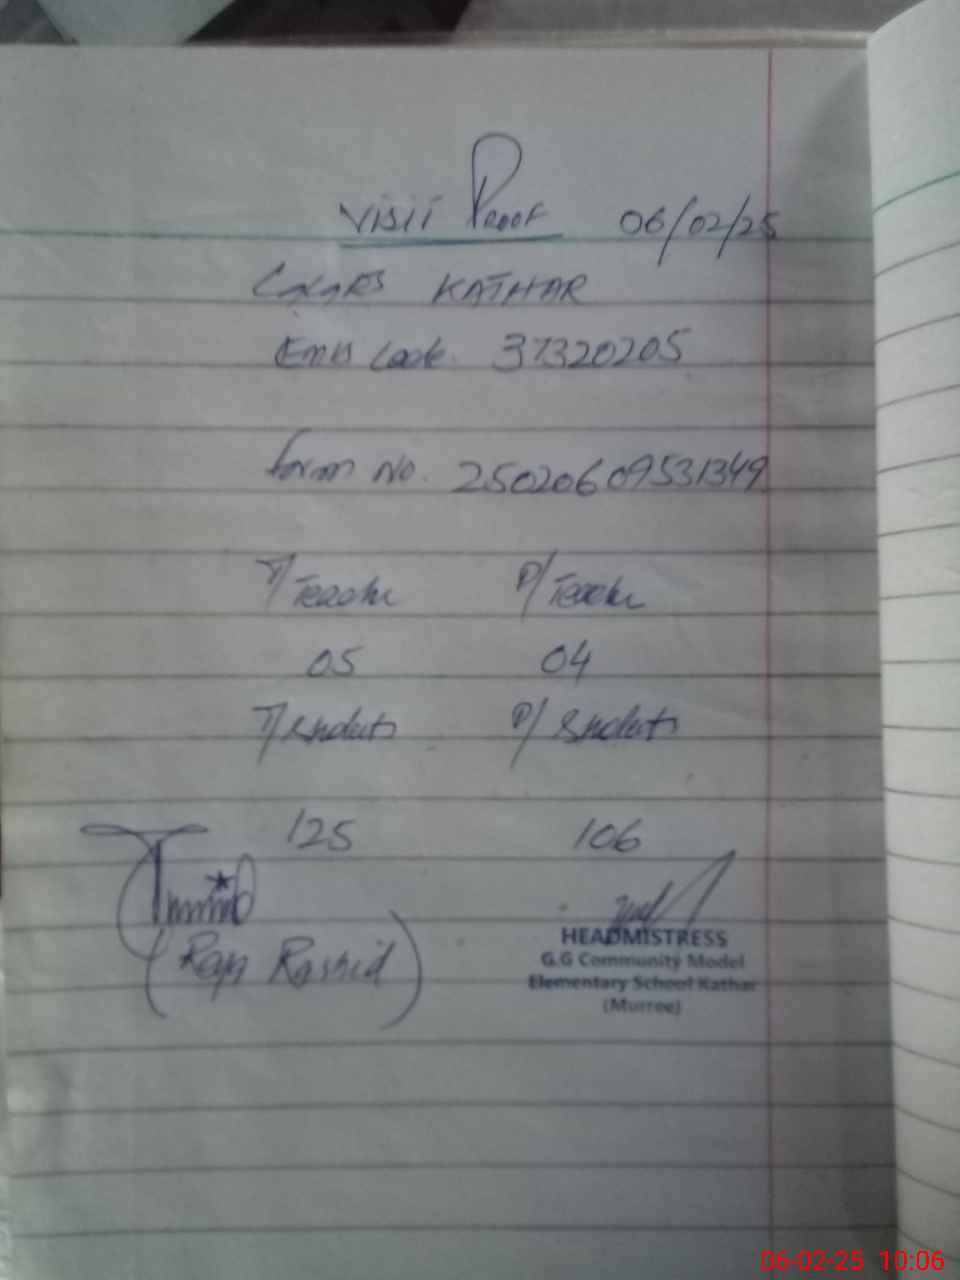 Visit Proof 06/02/25
KATHAR
Emis Code. 37320205
Form No. 25020609531349
T/Teacher P/Teacher
05 04
T/Students P/Students
125 106
(Raja Rashid)
HEADMISTRESS
G.G Community Model
Elementary School Kathar
(Murree)
06-02-25 10:06